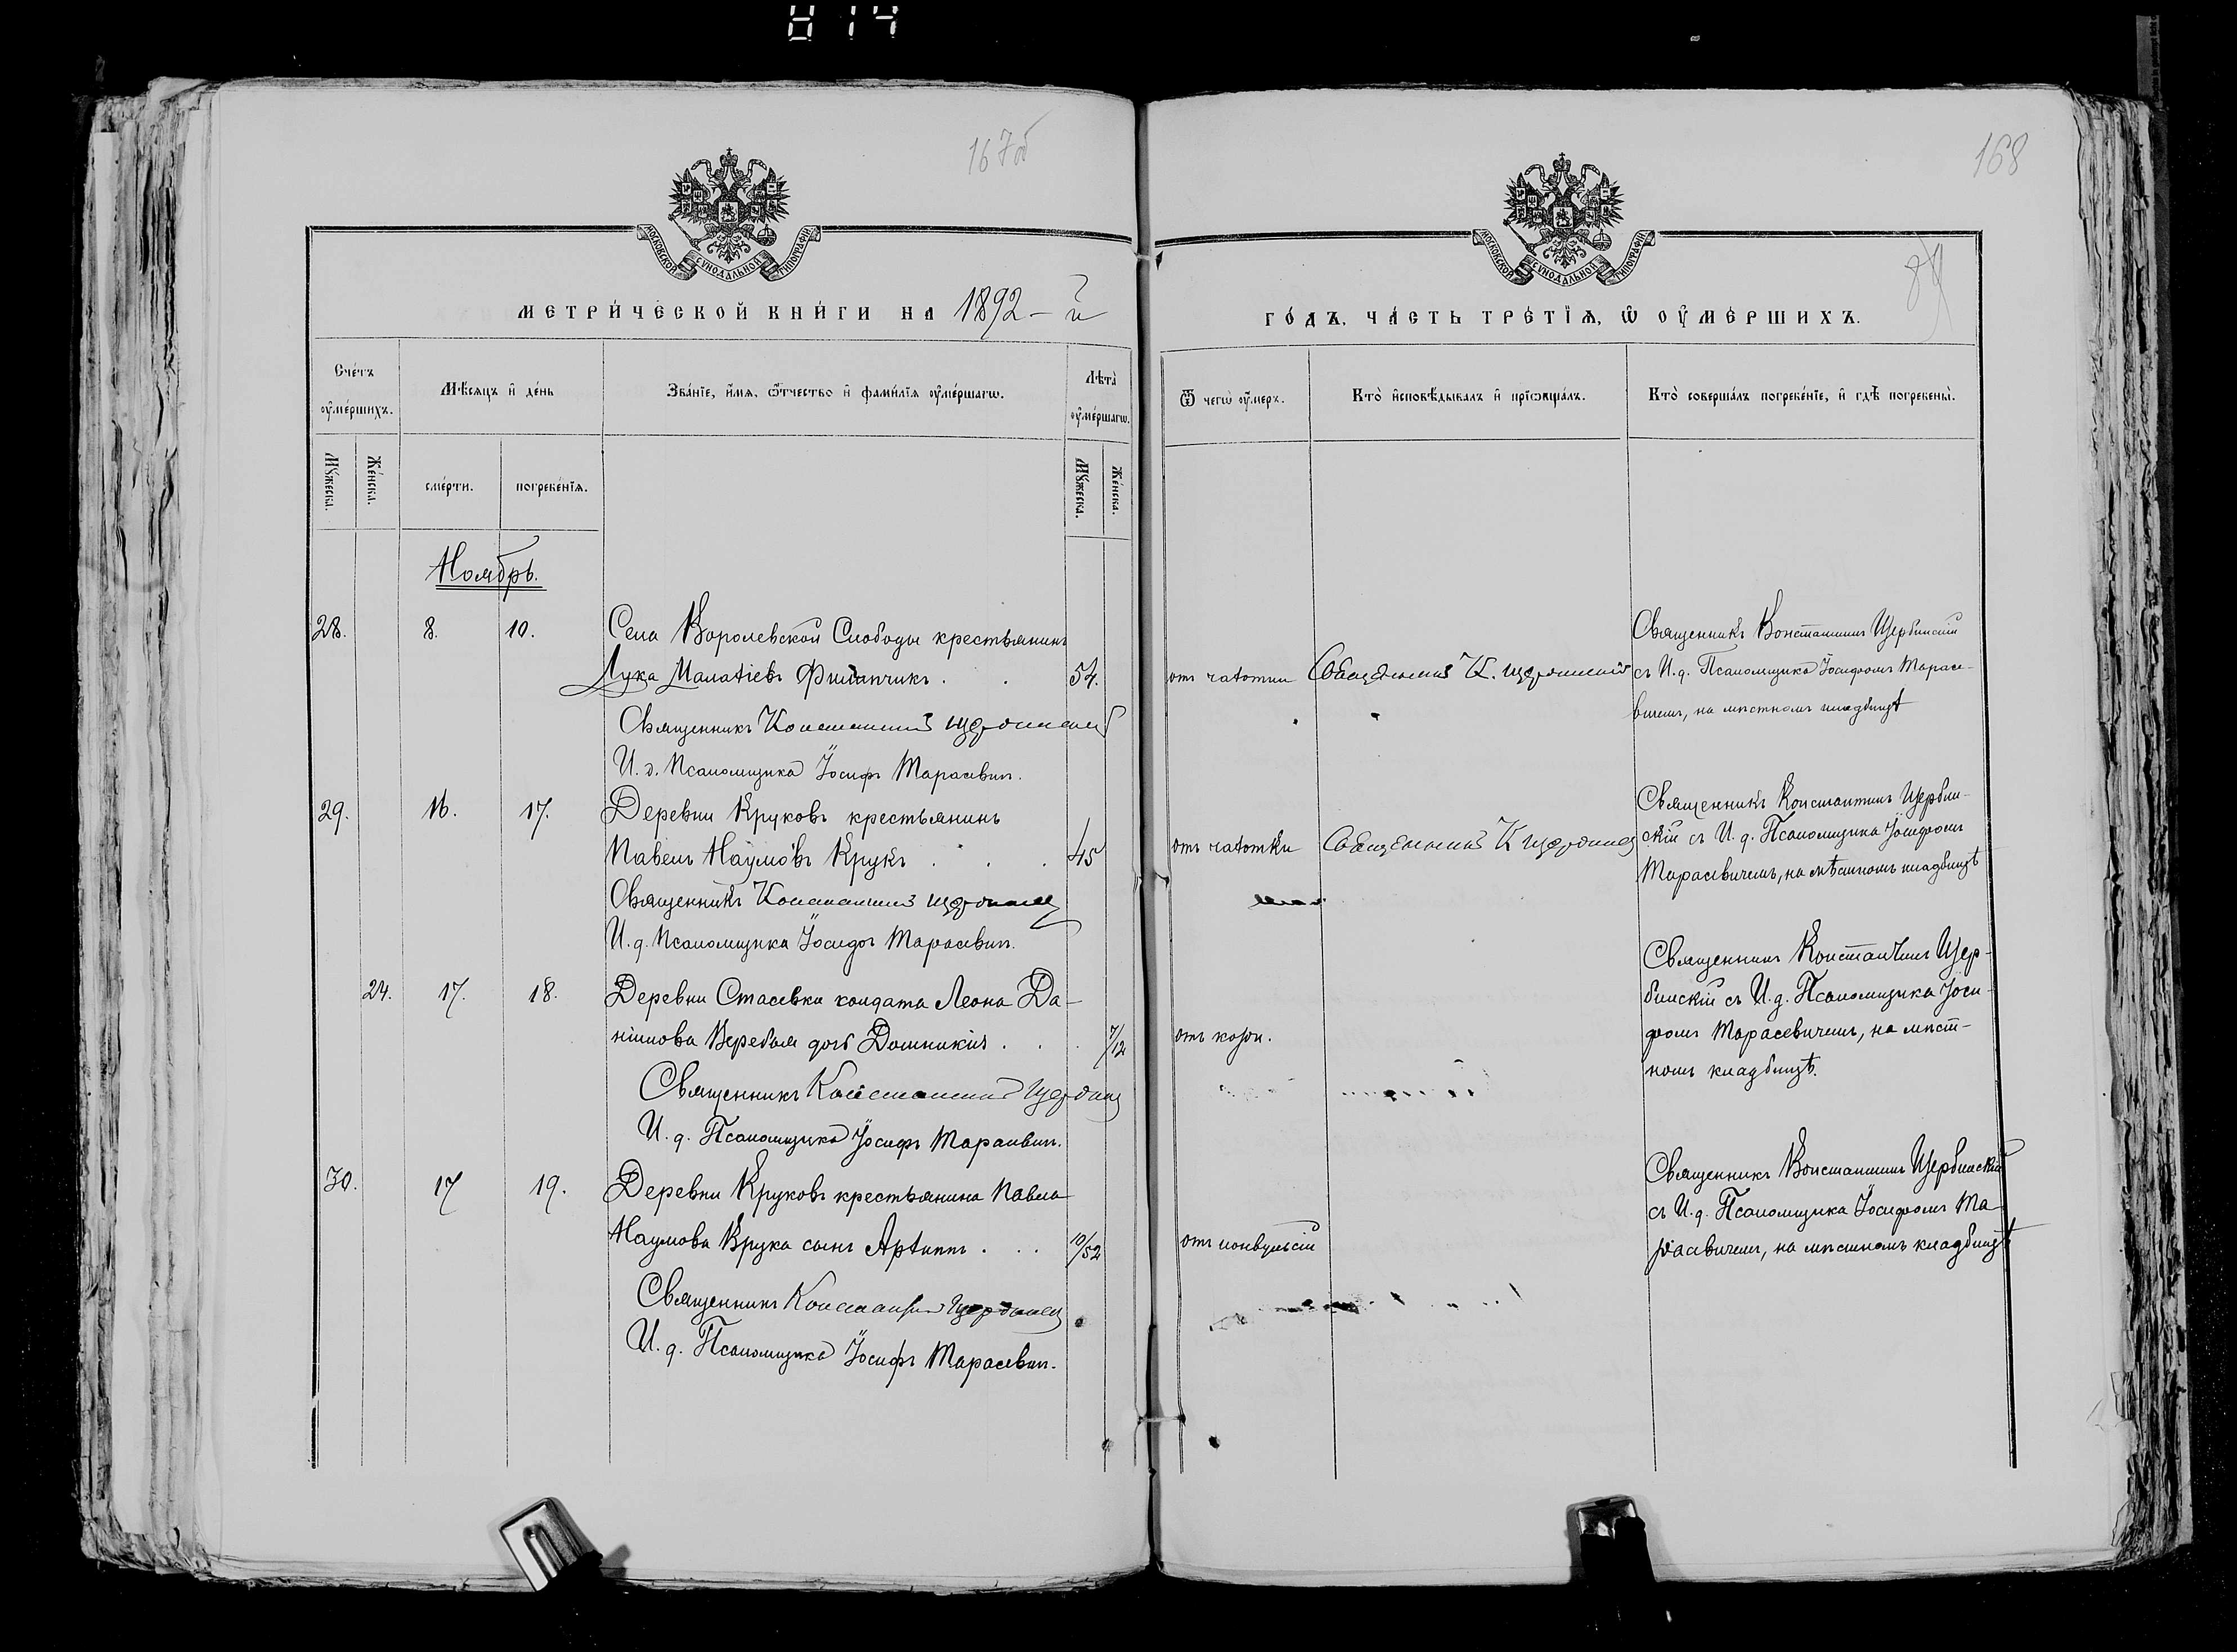 814
167об
МОСКОВСКОЙ СѴНОДАЛЬНОЙ ТИПОГРАФІИ
МЕТРИ́ЧЕСКОЙ КНИ́ГИ НА 1892-й
Сче́тъ ᲂу҆ме́ршихъ.
Мꙋ́жеска.
Же́нска.
Мѣ́сяцъ и҆ де́нь
сме́рти.
погребе́нїѧ.
Зва́нїе, и҆́мѧ, ѻ҆́тчество и҆ фами́лїѧ ᲂу҆ме́ршагѡ.
Лѣта̀ ᲂу҆ме́ршагѡ.
Мꙋ́жеска.
Же́нска.
Ноябрь.
28. 8. 10. Села Королевской Слободы крестьянинъ
Лука Малатіевъ . . 54.
Священникъ Константинъ Щербинскій
И. д. Псаломщика Іосифъ Тарасевич.
29. 16. 17. Деревни Круковъ крестьянинъ
Павелъ Наумовъ Крукъ . . . 45
Священникъ Константинъ Щербинскій
И. д. Псаломщика Іосифъ Тарасевич.
24. 17. 18. Деревни Стасевки солдата Леона Да-
нилова дочь Домникія . . . 7/12
Священникъ Константинъ Щербинскій
И. д. Псаломщика Іосифъ Тарасевич.
30. 17 19. Деревни Круковъ крестьянина Павла
Наумова Крука сынъ . . . 10/52
Священникъ Константинъ Щербинскій
И. д. Псаломщика Іосифъ Тарасевич.
168
МОСКОВСКОЙ СѴНОДАЛЬНОЙ ТИПОГРАФІИ
ГО́ДЪ, ЧА́СТЬ ТРЕ́ТЇѦ, Ѡ҆ ОУ҆МЕ́РШИХЪ.
Ѿ чегѡ̀ ᲂу҆́меръ.
Кто̀ и҆сповѣ́дывалъ и҆ прїѡбща́лъ.
Кто̀ соверша́лъ погребе́нїе, и҆ гдѣ̀ погребены̀.
Священникъ Константинъ Щербинскій
отъ чахотки Священникъ К. Щербинскій съ И. д. Псаломщика Іосифомъ Тарасе-
вичемъ, на мѣстномъ кладбищѣ
Священникъ Константинъ Щербин-
отъ чахотки Священникъ К Щербинскій скій съ И. д. Псаломщика Іосифомъ
Тарасевичемъ, на мѣстномъ кладбищѣ
Священникъ Константинъ Щер-
бинскій съ И. д. Псаломщика Іоси-
отъ кори. фомъ Тарасевичемъ, на мѣст-
номъ кладбищѣ.
Священникъ Константинъ Щербинскій
съ И. д. Псаломщика Іосифомъ Та
отъ конвульсій расевичемъ, на мѣстномъ кладбищѣ